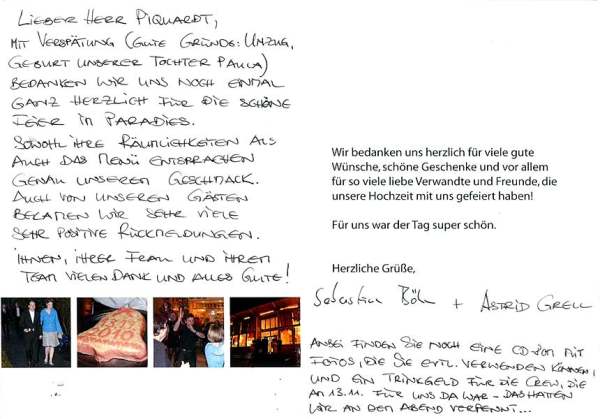 LIEBER HERR PIQUARDT,
MIT VERSPÄTUNG (GUTE GRÜNDE: UMZUG,
GEBURT UNSERER TOCHTER PAULA)
BEDANKEN WIR UNS NOCH EINMAL
GANZ HERZLICH FÜR DIE SCHÖNE
FEIER IM PARADIES.
SOWOHL IHRE RÄUMLICHKEITEN ALS
AUCH DAS MENÜ ENTSPRACHEN
GENAU UNSEREM GESCHMACK.
AUCH VON UNSEREN GÄSTEN
BEKAMEN WIR SEHR VIELE
SEHR POSITIVE RÜCKMELDUNGEN.
IHNEN, IHRER FRAU UND IHREM
TEAM VIELEN DANK UND ALLES GUTE!
Wir bedanken uns herzlich für viele gute
Wünsche, schöne Geschenke und vor allem
für so viele liebe Verwandte und Freunde, die
unsere Hochzeit mit uns gefeiert haben!
Für uns war der Tag super schön.
Herzliche Grüße,
Sebastian + ASTRID GRELL
ANBEI FINDEN SIE NOCH EINE CD-ROM MIT
FOTOS, DIE SIE EVTL. VERWENDEN KÖNNEN,
UND EIN TRINKGELD FÜR DIE CREW, DIE
AM 13.11. FÜR UNS DA WAR - DAS HATTEN
WIR AN DEM ABEND VERPENNT...